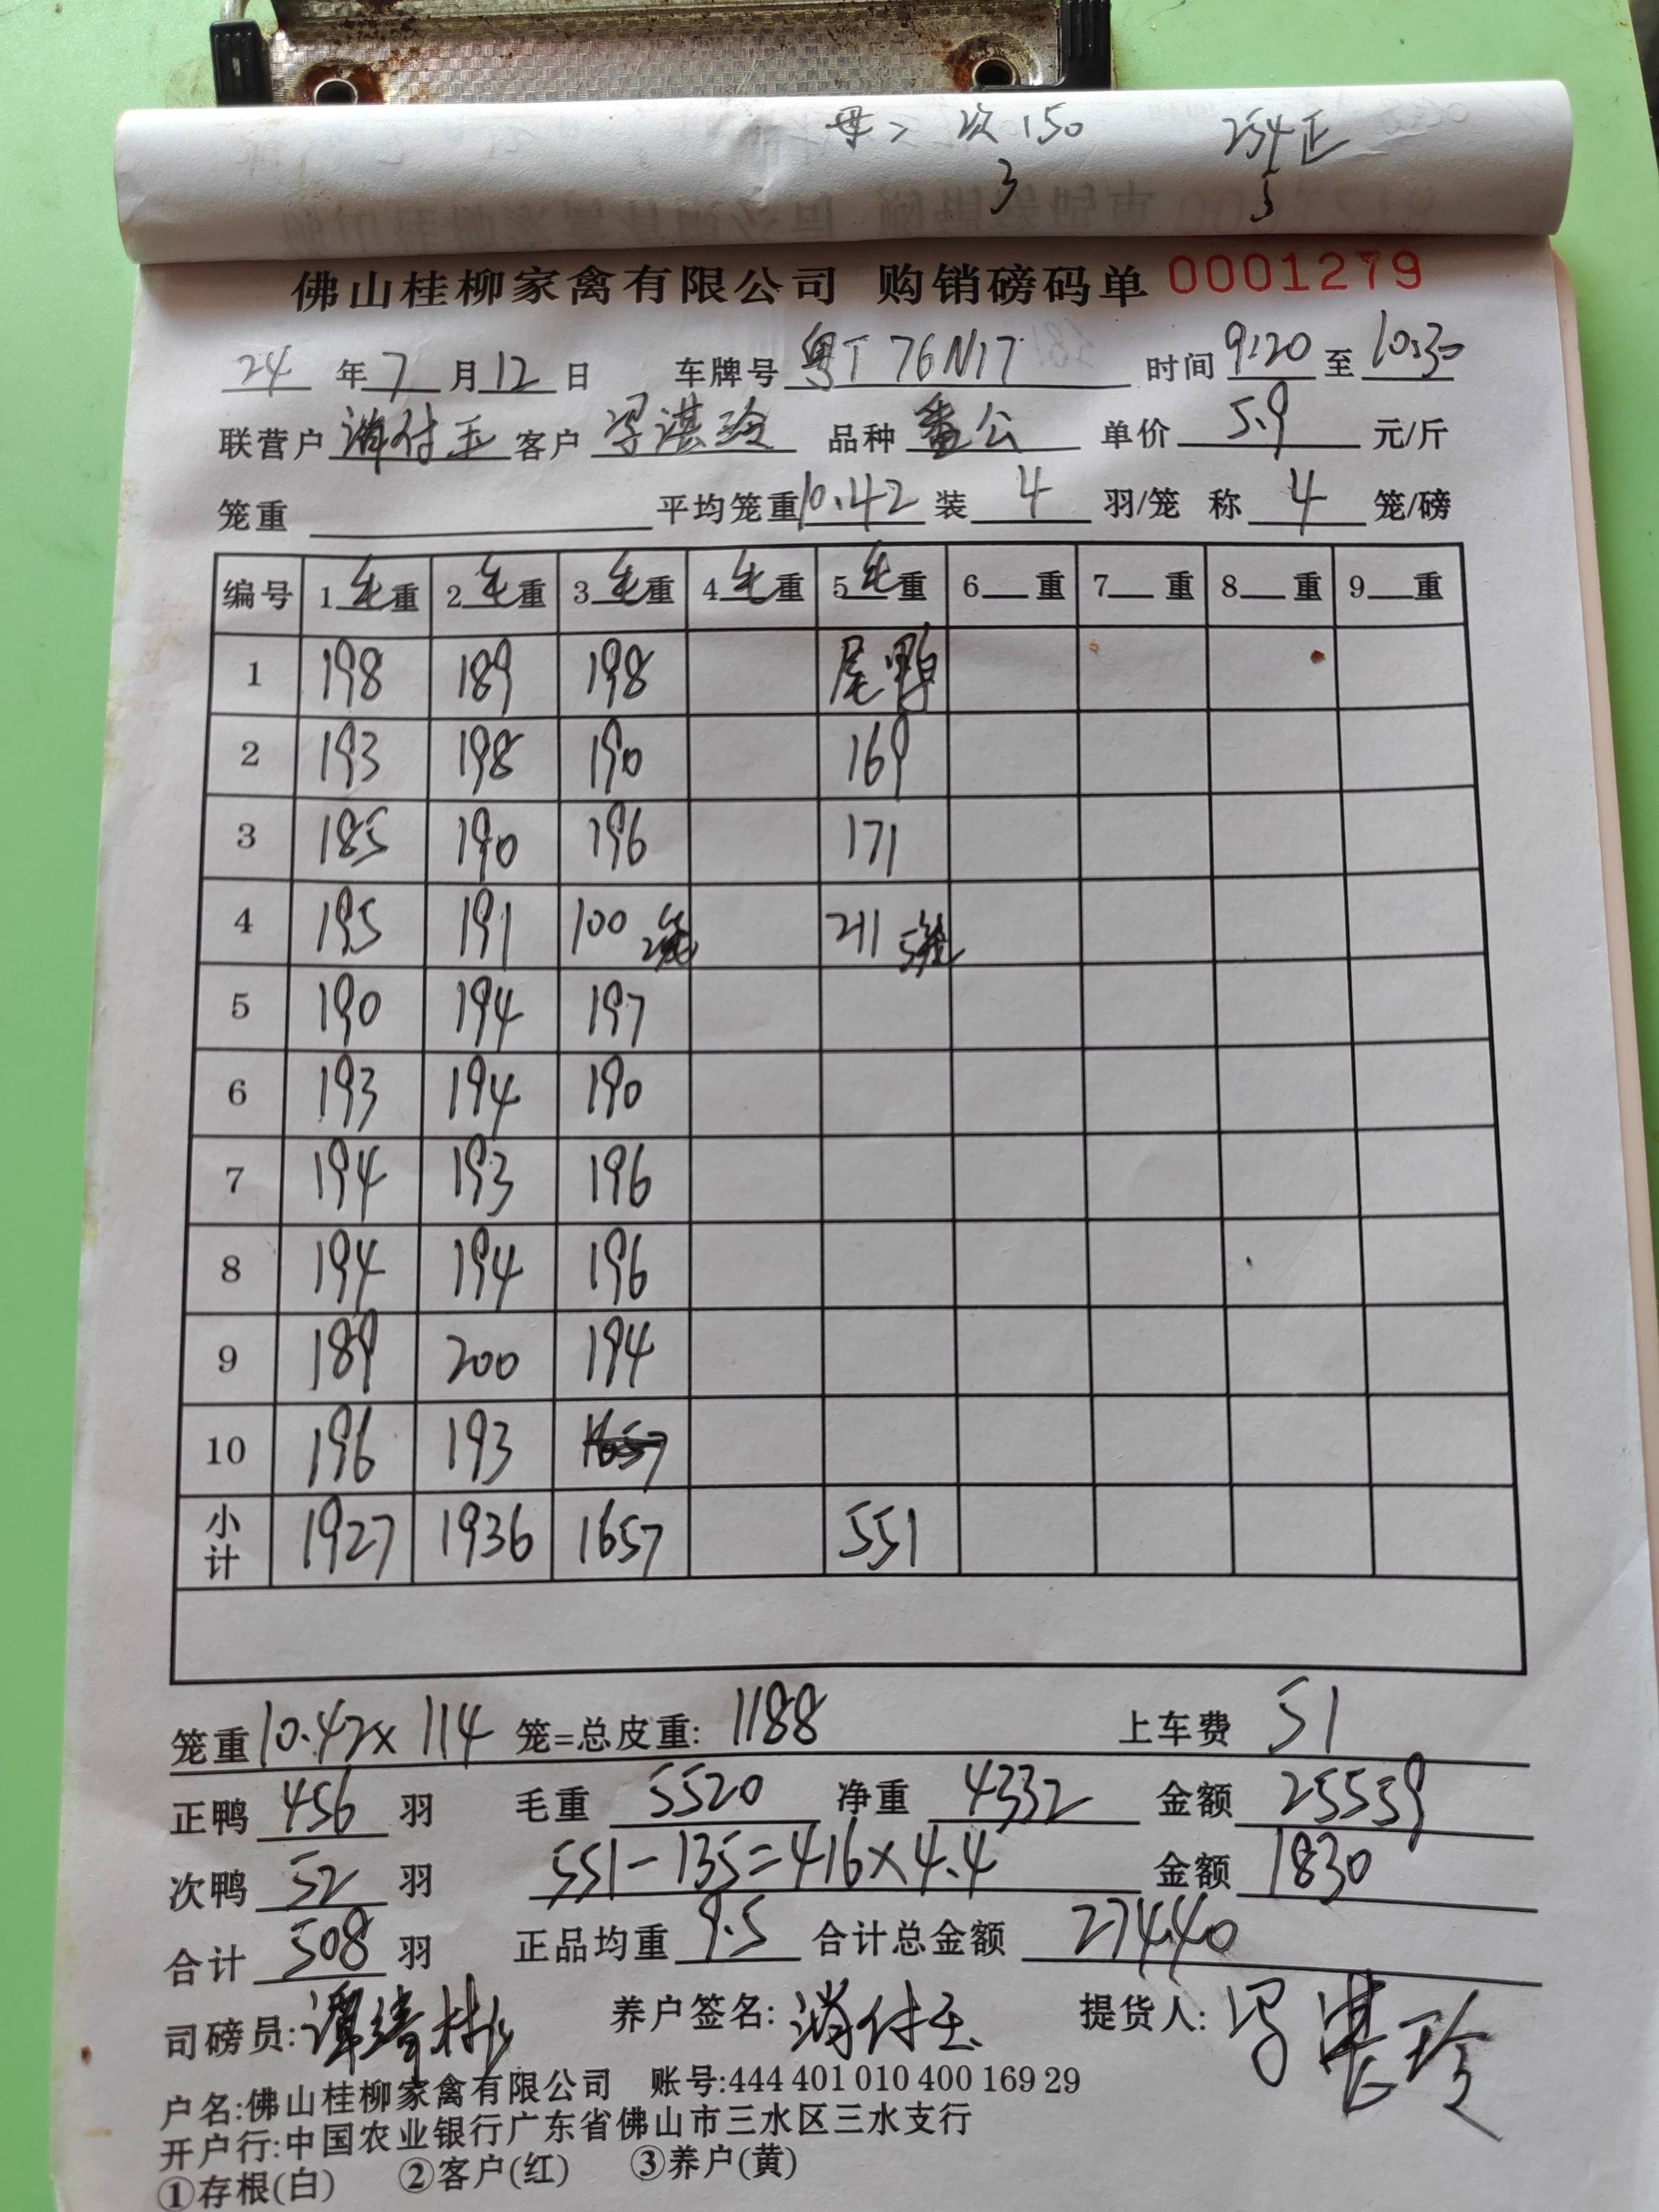 次 150 254正
3 5
佛山桂柳家禽有限公司 购销磅码单 0001279
24 年 7 月 12 日 车牌号 粤T 76N17 时间 9:20 至 10:30
联营户 付玉 客户 湛玲 品种 番公 单价 5.9 元/斤
笼重 平均笼重 10.42 装 4 羽/笼 称 4 笼/磅
编号 1毛重 2毛重 3毛重 4毛重 5毛重 6 重 7 重 8 重 9 重
1 198 189 198 尾鸭
2 193 198 190 169
3 185 190 196 171
4 195 191 100 2笼 211 5笼
5 190 194 197
6 193 194 190
7 194 193 196
8 194 194 196
9 189 200 194
10 196 193 1657
小计 1927 1936 1657 551
笼重 10.42× 114 笼=总皮重: 1188 上车费 51
正鸭 456 羽 毛重 5520 净重 4332 金额 25559
次鸭 52 羽 551-135=416×4.4 金额 1830
合计 508 羽 正品均重 9.5 合计总金额 27440
司磅员: 谭 养户签名: 付玉 提货人: 湛玲
户名:佛山桂柳家禽有限公司 账号:444 401 010 400 169 29
开户行:中国农业银行广东省佛山市三水区三水支行
①存根(白) ②客户(红) ③养户(黄)